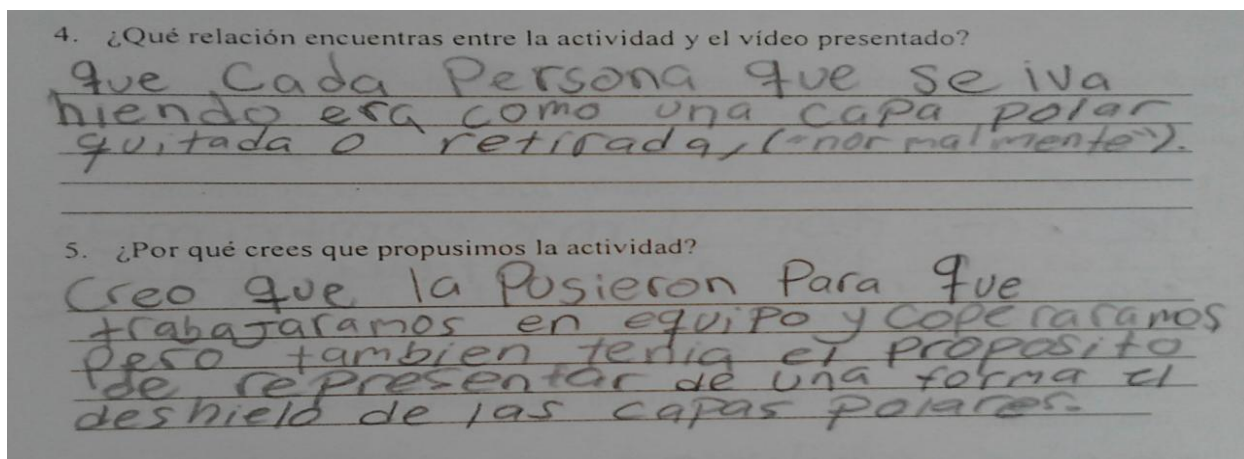 4. ¿Qué relación encuentras entre la actividad y el vídeo presentado?
que Cada Persona que se iva
hiendo era como una capa polar
quitada o retirada, ("normalmente").
5. ¿Por qué crees que propusimos la actividad?
Creo que la Pusieron Para que
trabajaramos en equipo y coperaramos
pero tambien tenia el proposito
de representar de una forma el
deshielo de las capas polares.